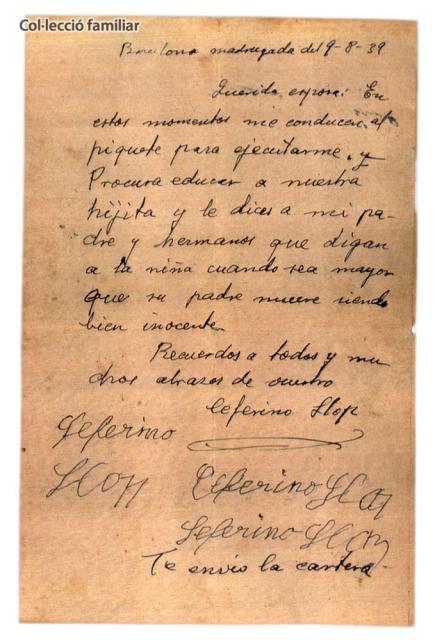 Col·lecció familiar
Barcelona madrugada del 9-8-39
Querida esposa: En
estos momentos me conducen al
piquete para ejecutarme, y
Procura educar a nuestra
hijita y le dices a mi pa-
dre y hermanos que digan
a la niña cuando sea mayor
que su padre muere siendo
bien inocente
Recuerdos a todos y mu
chos abrazos de vuestro
Ceferino Llop
Ceferino
Llop
Ceferino Llop
Ceferino Llop
Te envio la cartera-